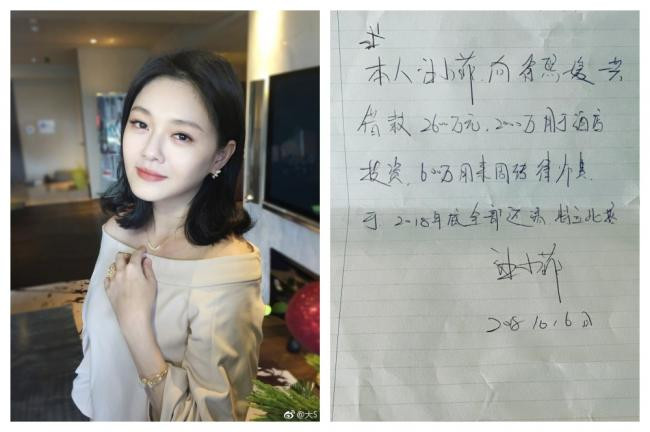 大S
本人汪小菲,向徐熙媛共
借款2600万元,2000万用于酒店
投资,600万用来周转
于2018年底全部还清,特立此
汪小菲
2018.10.6日